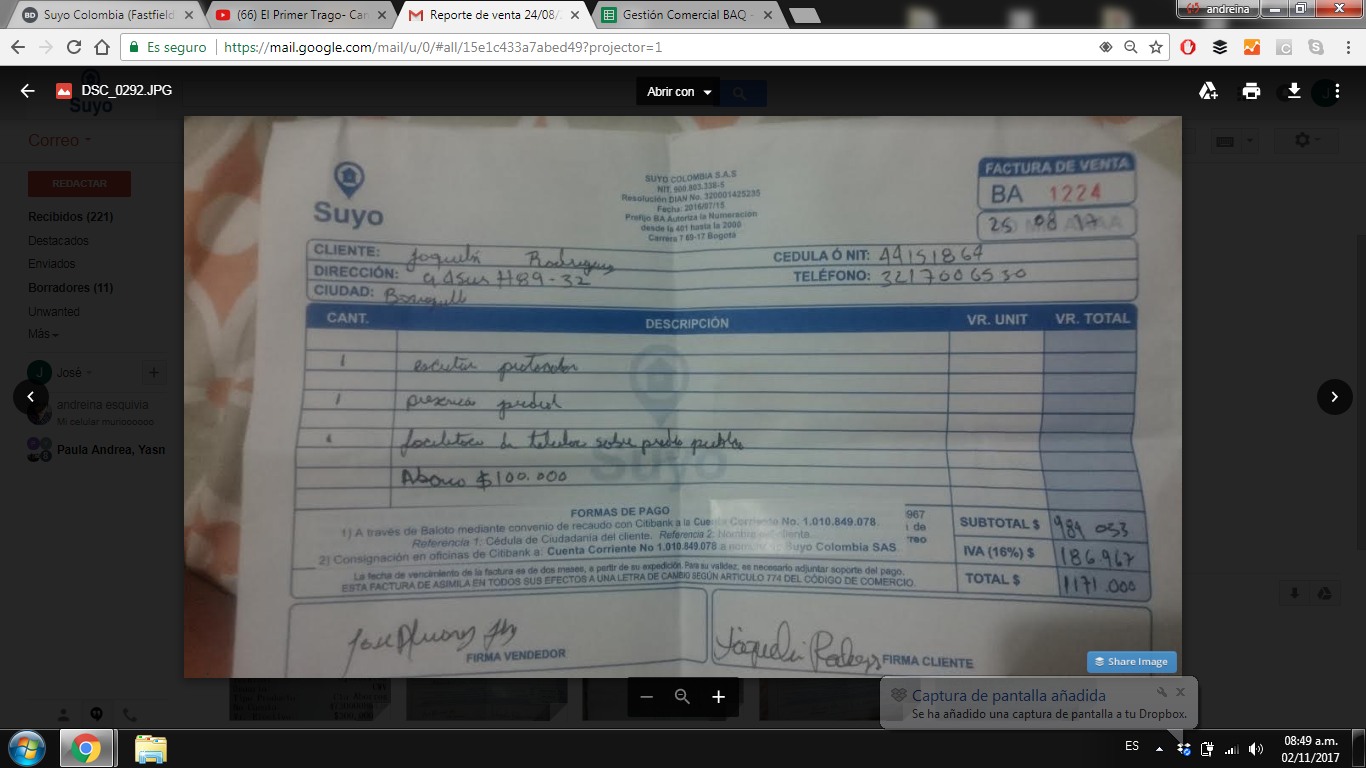 Suyo Colombia (Fastfield
(66) El Primer Trago- Can
Reporte de venta 24/08/
Gestión Comercial BAQ -
andreina
Es seguro
https://mail.google.com/mail/u/0/#all/15e1c433a7abed49?projector=1
DSC_0292.JPG
Abrir con
Suyo
Correo
REDACTAR
Recibidos (221)
Destacados
Enviados
Borradores (11)
Unwanted
Más
José
andreina esquivia
Mi celular muriooooooo
Paula Andrea, Yasn
Suyo
SUYO COLOMBIA S.A.S
NIT. 900.803.338-5
Resolución DIAN No. 320001425235
Fecha: 2016/07/15
Prefijo BA Autoriza la Numeración
desde la 401 hasta la 2000
Carrera 7 69-17 Bogotá
FACTURA DE VENTA
BA 1224
25 08 17
CLIENTE: Joquelin Rodriguez
CEDULA Ó NIT: 44151864
DIRECCIÓN: 45sur #89-32
TELÉFONO: 3217006530
CIUDAD:
CANT. DESCRIPCIÓN VR. UNIT VR. TOTAL
1
1 predial
de sobre predio
Abono $100.000
Suyo
FORMAS DE PAGO
1) A través de Baloto mediante convenio de recaudo con Citibank a la Cuenta Corriente No. 1.010.849.078.
Referencia 1: Cédula de Ciudadanía del cliente. Referencia 2: Nombre del cliente.
2) Consignación en oficinas de Citibank a: Cuenta Corriente No 1.010.849.078 a nombre de Suyo Colombia SAS
967
de
rreo
La fecha de vencimiento de la factura es de dos meses, a partir de su expedición. Para su validez, es necesario adjuntar soporte del pago.
ESTA FACTURA DE ASIMILA EN TODOS SUS EFECTOS A UNA LETRA DE CAMBIO SEGÚN ARTICULO 774 DEL CÓDIGO DE COMERCIO.
SUBTOTAL $ 984 033
IVA (16%) $ 186.967
TOTAL $ 1171.000
FIRMA VENDEDOR
FIRMA CLIENTE
Share Image
Captura de pantalla añadida
Se ha añadido una captura de pantalla a tu Dropbox.
ES
08:49 a.m.
02/11/2017